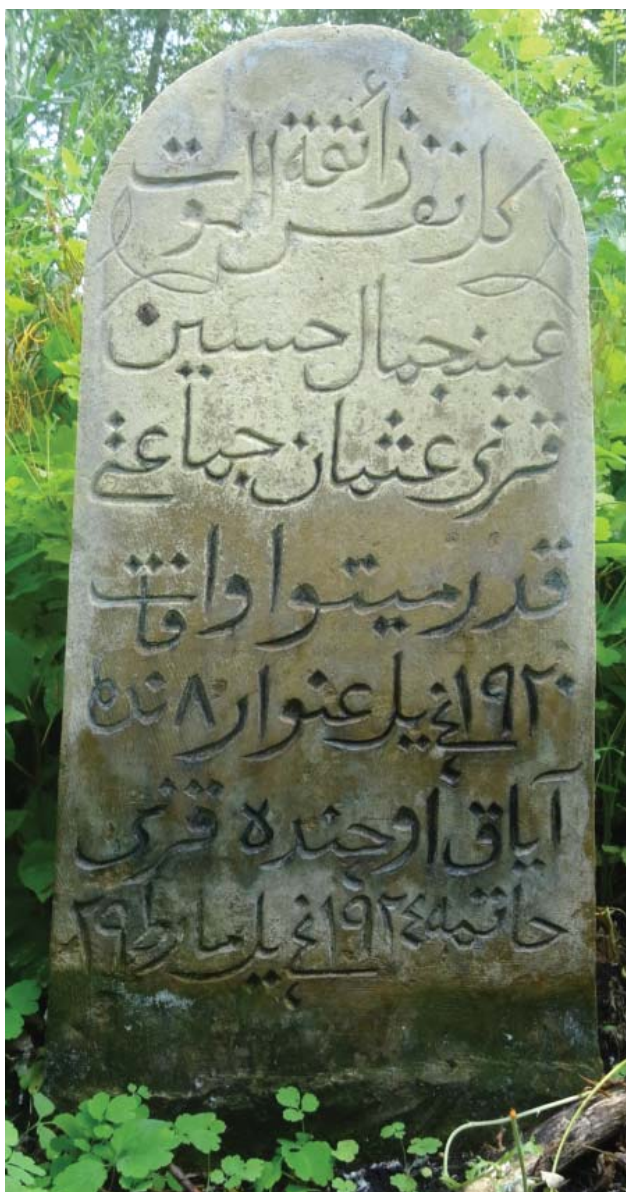 كل نفس ذأئقة الموت
عينجمال حسين
قزى عثمان جماعتى
قدرميتوا وافات
١٩٢٠ نچى يل عنوار ٨ نده
آياق اوچنده قزى
حاتمه ١٩٢٤ نچى يل مارط ٢٩